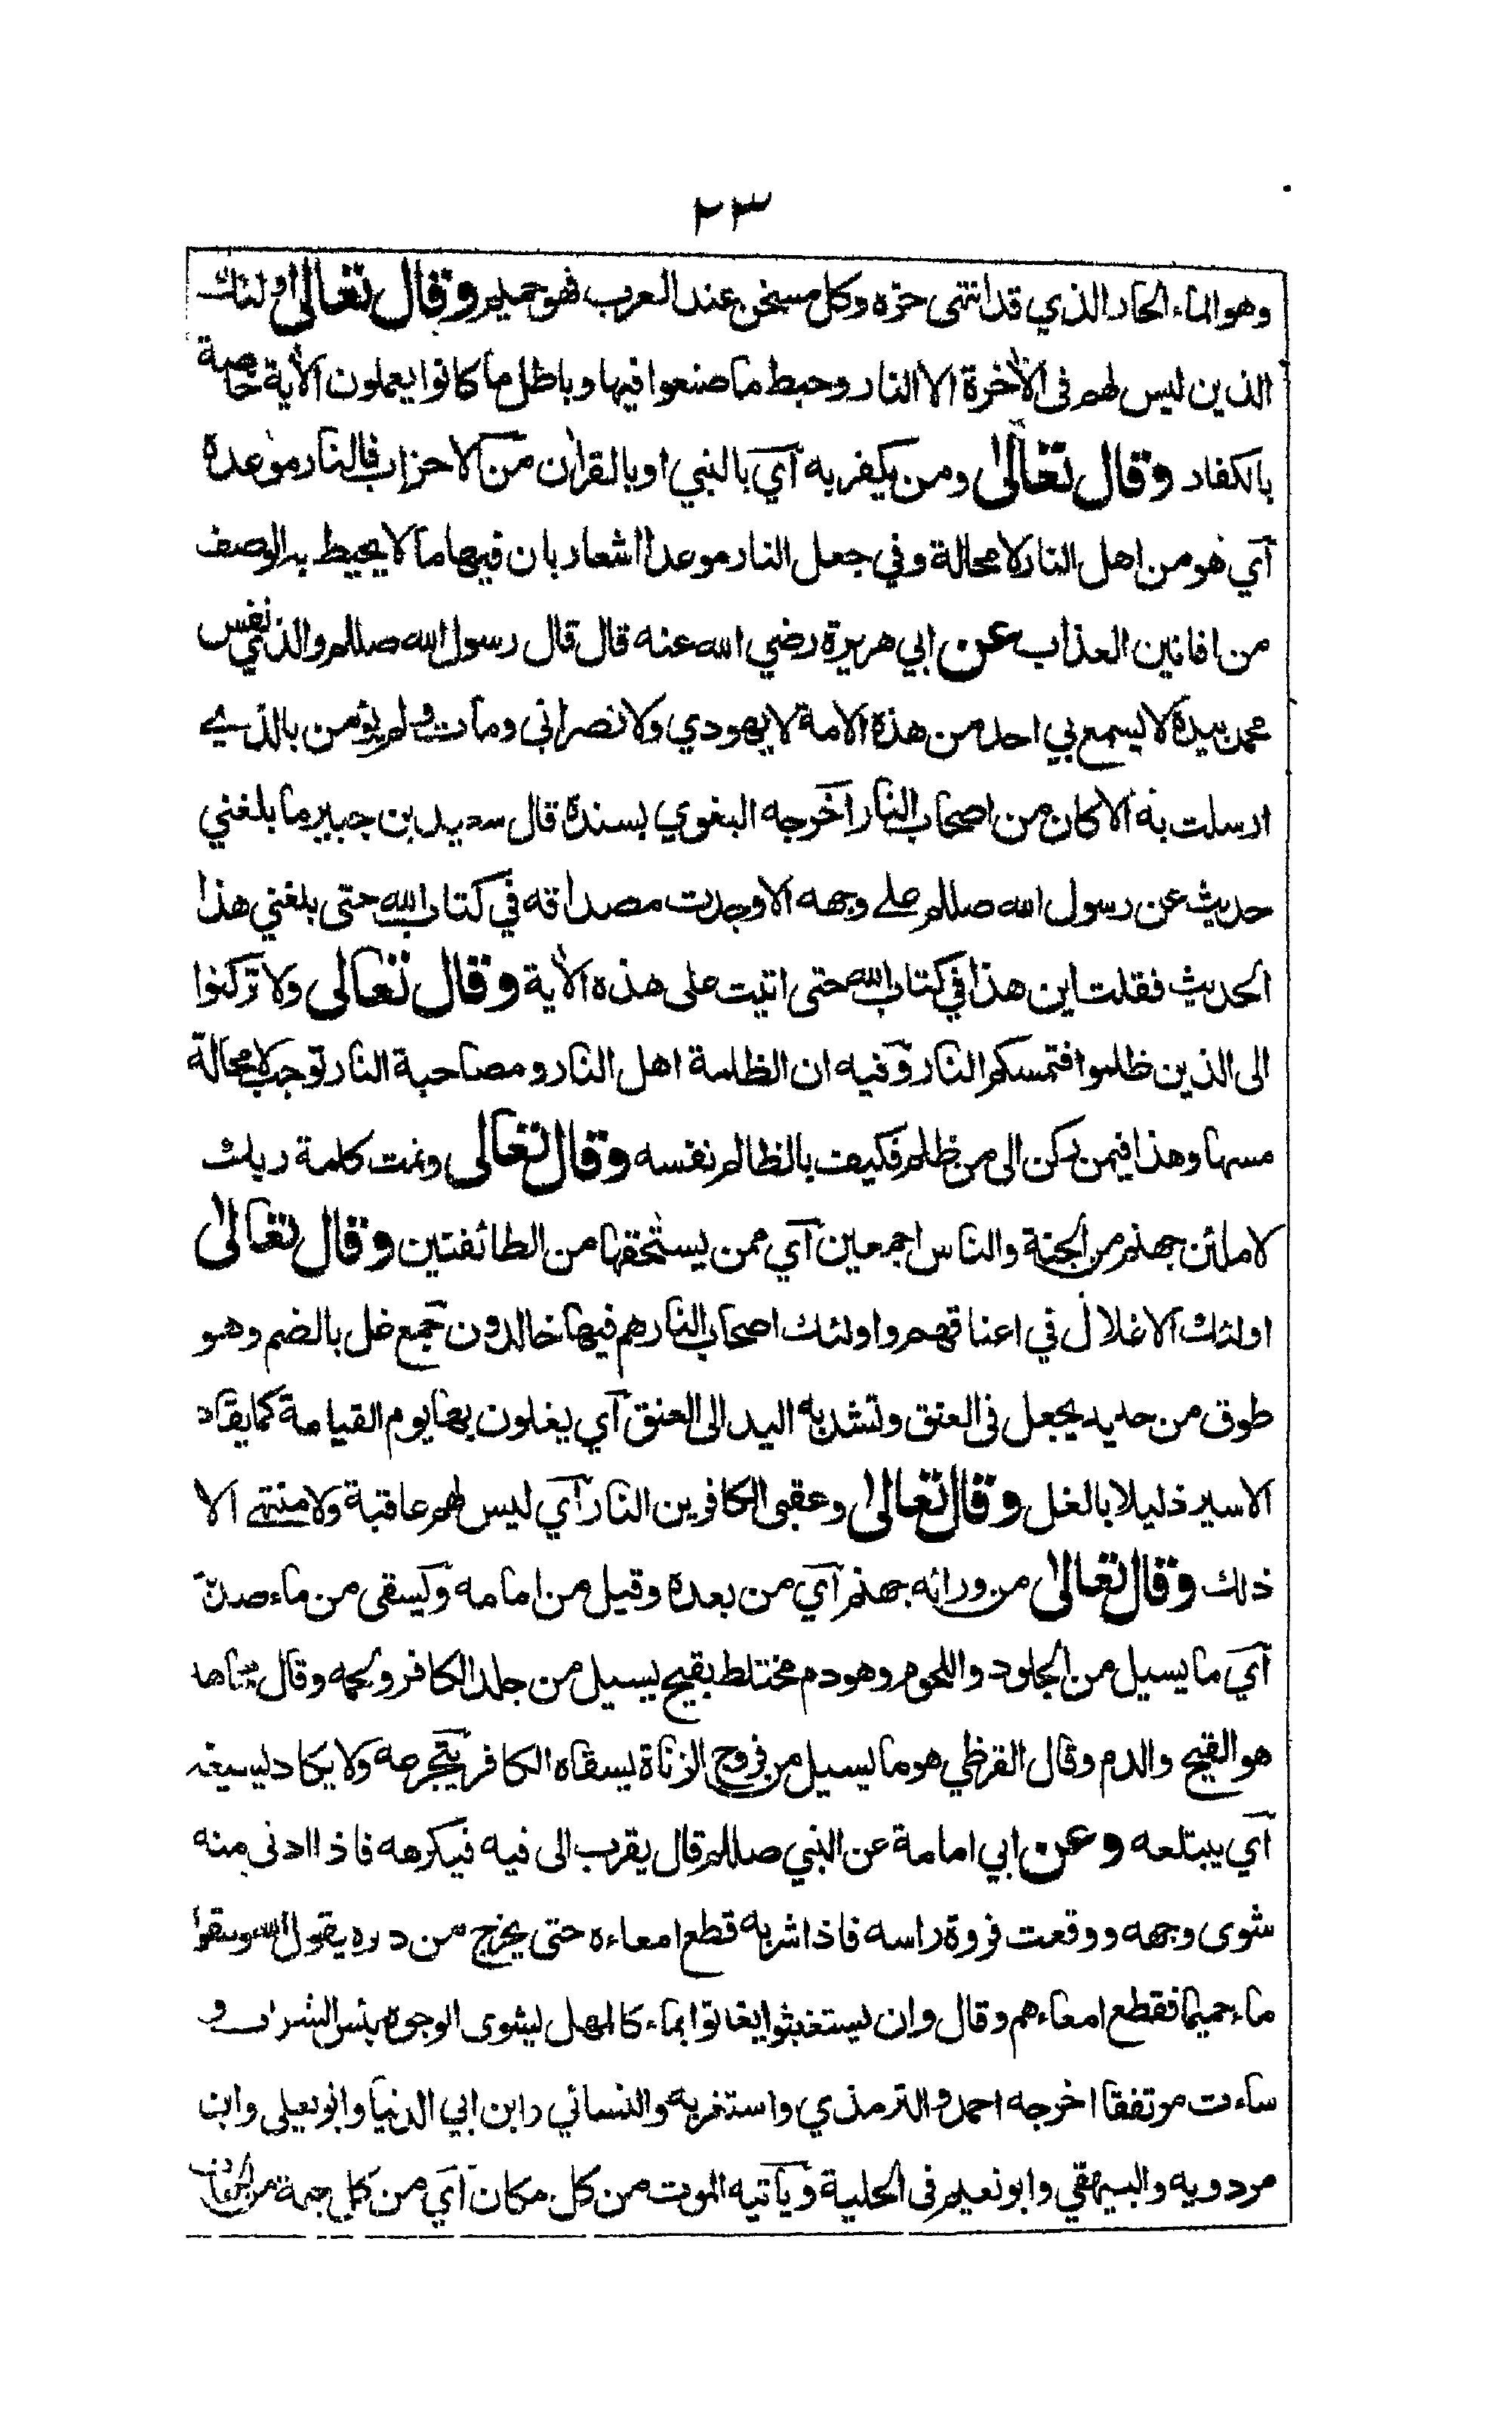 ٢٣
وهو الماء الحار الذي قد انتهى حرّه وكل مسخن عند العرب فهو حميم وقال تعالى اولئك
الذين ليس لهم فى الآخرة الا النار وحبط ما صنعوا فيها وباطل ما كانوا يعملون الآية خاصة
بالكفار وقال تعالى ومن يكفر به آي بالنبي او بالقرآن من الاحزاب فالنار موعده
آي هو من اهل النار لا محالة وفي جعل النار موعدا اشعار بان فيها ما لا يحيط به الوصف
من افانين العذاب عن ابي هريرة رضي الله عنه قال قال رسول الله صللم والذي نفس
محمد بيده لا يسمع بي احد من هذه الامة لا يهودي ولا نصراني ومات ولم يؤمن بالذي
ارسلت به الا كان من اصحاب النار آخرجه البغوي بسنده قال سعيد بن جبير ما بلغني
حديث عن رسول الله صللم على وجهه الا وجدت مصداقه في كتاب الله حتى بلغني هذا
الحديث فقلت اين هذا في كتاب الله حتى اتيت على هذه الآية وقال تعالى ولا تركنوا
الى الذين ظلموا فتمسكم النار وفيه ان الظلمة اهل النار و مصاحبة النار توجب لا محالة
مسها وهذا فيمن ركن الى من ظلم فكيف بالظالم نفسه وقال تعالى وتمت كلمة ربك
لاملئن جهنم من الجنة والناس اجمعين آي ممن يستحقها من الطائفتين وقال تعالى
اولئك الاغلال في اعناقهم واولئك اصحاب النار هم فيها خالدون جمع غل بالضم وهو
طوق من حديد يجعل فى العنق وتشد به اليد الى العنق آي يغلون بها يوم القيامة كما يقاد
الاسير ذليلا بالغل وقال تعالى وعقبى الكافرين النار آي ليس لهم عاقبة ولا منتهى الا
ذلك وقال تعالى من ورائه جهنم آي من بعده وقيل من امامه ويسقى من ماء صديد
آي ما يسيل من الجلود واللحوم وهو دم مختلط بقيح يسيل من جلد الكافر ولحمه وقال مجاهد
هو القيح والدم وقال القرظي هو ما يسيل من فروج الزناة يسقاه الكافر يتجرعه ولا يكاد يسيغه
آي يبتلعه وعن ابي امامة عن النبي صللم قال يقرب الى فيه فيكرهه فاذا ادنى منه
شوى وجهه ووقعت فروة راسه فاذا شربه قطع امعاءه حتى يخرج من دبره يقول الله وسقوا
ماء حميما فقطع امعاءهم وقال وان يستغيثوا يغاثوا بماء كالمهل يشوى الوجوه بئس الشراب و
ساءت مرتفقا اخرجه احمد والترمذي واستغربه والنسائي وابن ابي الدنيا وابو يعلى وابن
مردويه والبيهقي وابو نعيم فى الحلية ويآتيه الموت من كل مكان آي من كل جهة من الجهات